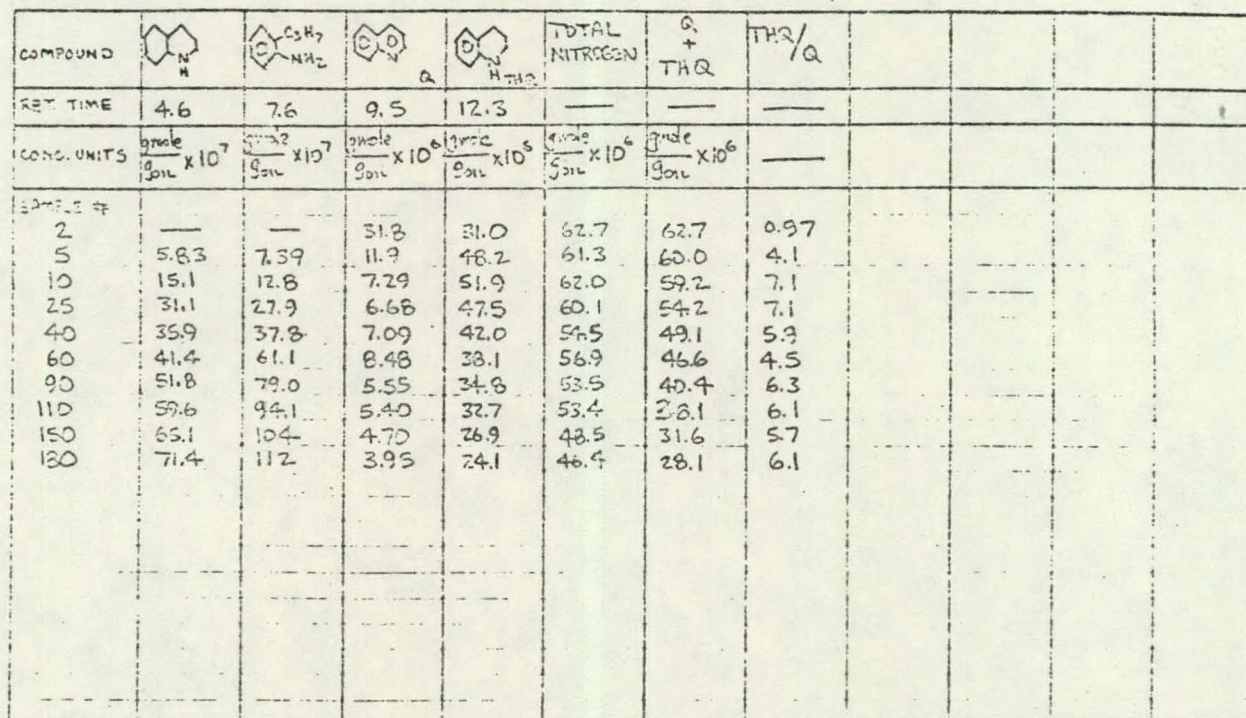 COMPOUND C3H7 NH2 N H N Q N H THQ TOTAL NITROGEN Q + THQ THQ/Q
RET. TIME 4.6 7.6 9.5 12.3 — — —
CONC. UNITS gmole/gOIL x10^7 gmole/gOIL x10^7 gmole/gOIL x10^6 gmole/gOIL x10^6 gmole/gOIL x10^6 gmole/gOIL x10^6 —
SAMPLE #
2 — — 31.8 31.0 62.7 62.7 0.97
5 5.83 7.39 11.9 48.2 61.3 60.0 4.1
10 15.1 12.8 7.29 51.9 62.0 59.2 7.1
25 31.1 27.9 6.68 47.5 60.1 54.2 7.1
40 35.9 37.8 7.09 42.0 54.5 49.1 5.9
60 41.4 61.1 8.48 38.1 56.9 46.6 4.5
90 51.8 79.0 5.55 34.8 53.5 40.4 6.3
110 59.6 94.1 5.40 32.7 53.4 38.1 6.1
150 65.1 104 4.70 26.9 48.5 31.6 5.7
180 71.4 112 3.95 24.1 46.4 28.1 6.1